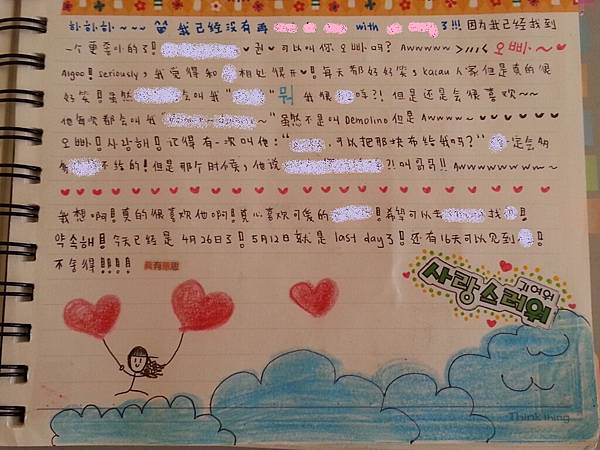 하하하~~~ 我已经没有再 with 了!!! 因为我已经找到
一个更好的了! 可以叫你오빠吗? Awwwww >///< 오빠~
Aigoo! seriously, 我觉得和 相处很开♥! 每天都好好笑, kacau人家但是真的很
好笑! 虽然 会叫我" " 뭐 我很 咩?! 但是还是会很喜欢~~
他每次都会叫我 ~" 虽然不是叫Demolino但是Awwww~
오빠! 사랑해! 记得有一次叫他: " , 可以把那块布给我吗?" 一定会
不给的! 但是那个时候, 他说 ?! 叫 哥!! Awwwwww wm~
我想啊! 真的很喜欢他啊! 真心喜欢可爱的 ! 希望可以去 找 !
약속해! 今天已经是4月26日了! 5月12日就是last day了! 还有16天可以见到 !
不舍得!!!!
사랑스러워
귀여워
Think thing